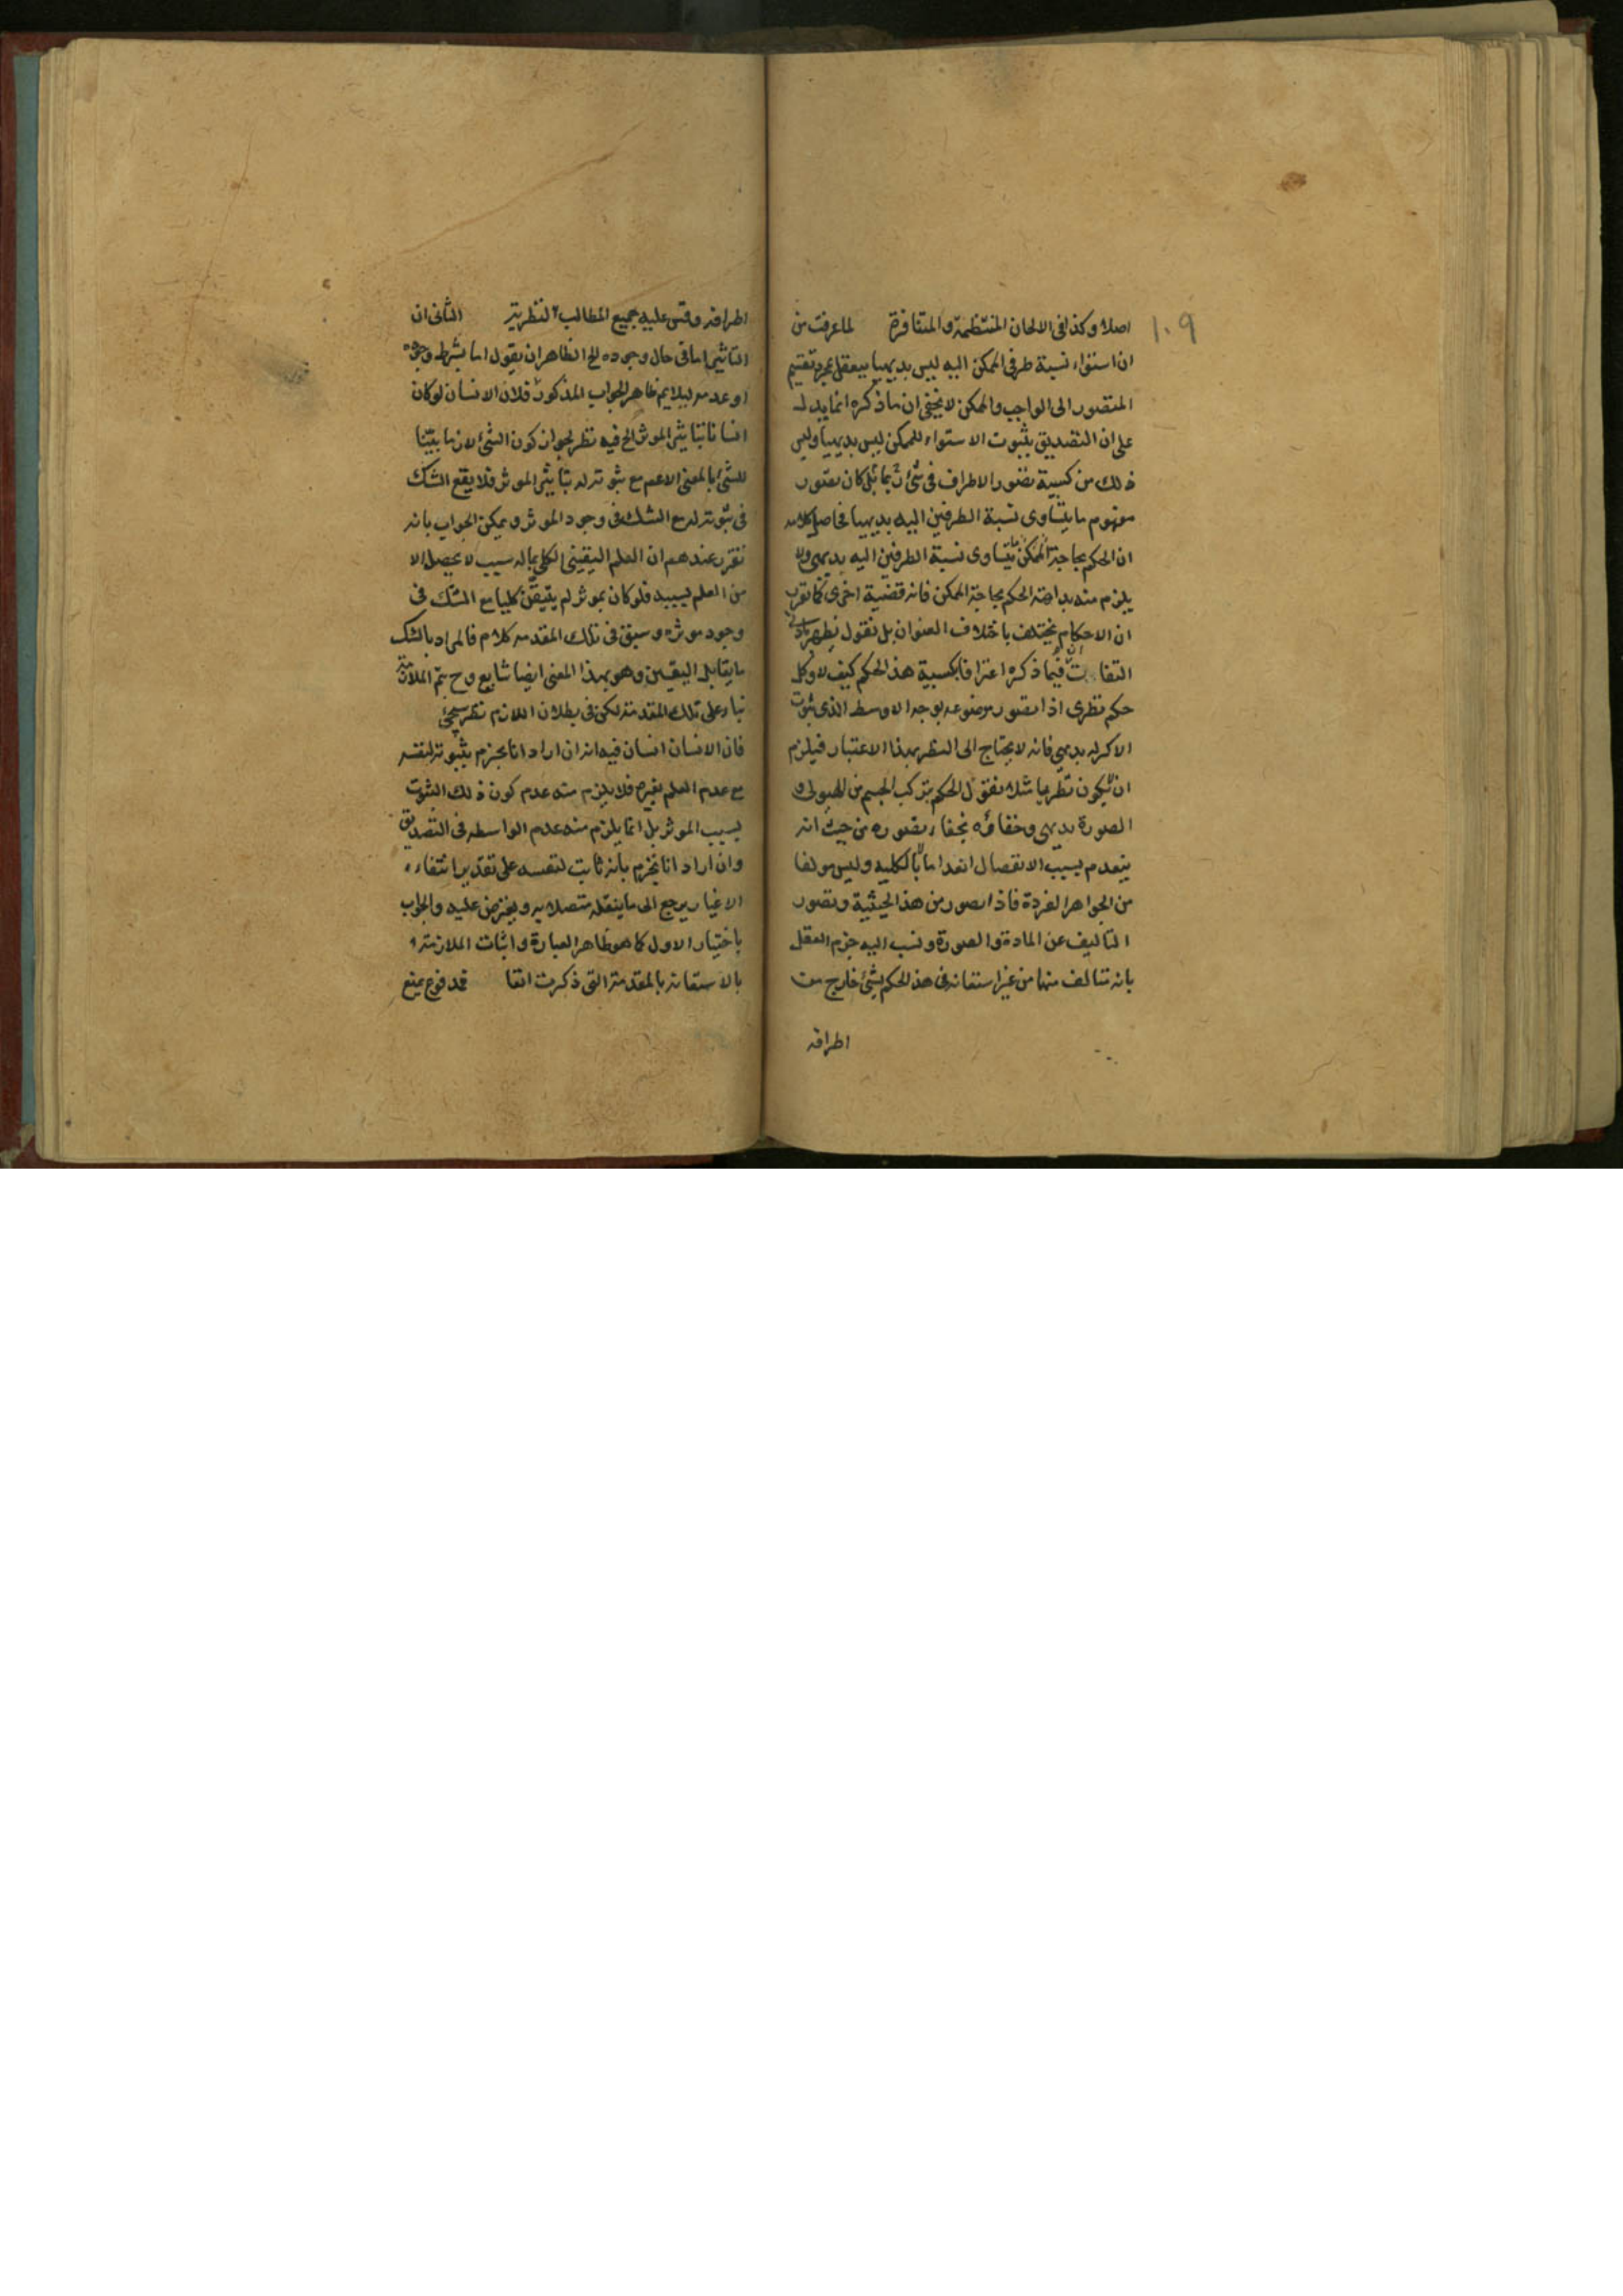 ١٠٩
اصلا وكذا في الالحان المنتظمة والمتنافرة لما عرفت من
ان استواء نسبة طرفى الممكن اليه ليس بديهيا بيعقل بمجرد تقسيم
المتصور الى الواجب والممكن لا يخفى ان ما ذكره انما يدل
على ان التصديق بثبوت الاستواء للممكن ليس بديهيا وليس
ذلك من كسبية تصور الاطراف فى شئ كان تصور
مفهوم ما يتساوى نسبة الطرفين اليه بديهيا فحاصل كلامه
ان الحكم بحاجة الممكن يتساوى نسبة الطرفين اليه بديهى ولا
يلزم منه بداهة الحكم بحاجة الممكن فانه قضية اخرى كما تقرر
ان الاحكام يختلف باختلاف العنوان بل نقول
التفات فيما ذكره اعترافا بكسبية هذا الحكم كيف لا وكل
حكم نظرى اذا تصور موضوعه بوجه الاوسط الذى ثبوت
الاكبر له بديهى فانه لا يحتاج الى النظر بهذا الاعتبار فيلزم
ان لا يكون نظريا مثلا نقول الحكم بتركب الجسم من الهيولى و
الصورة بديهى وخفاؤه بخفاء تصوره من حيث انه
ينعدم بسبب الانفصال انعداما بالكليه وليس مولفا
من الجواهر الفردة فاذا تصور من هذا الحيثية وتصور
التاليف عن المادة والصورة ونسب اليه جزم العقل
بانه متالف منهما من غير استعانه فى هذا الحكم بشئ خارج من
اطرافه
اطرافه وقس عليه جميع المطالب النظرية الثانى ان
التاثير اما فى حال وجوده الخ الظاهر ان يقول اما بشرط وجوده
او عدمه ليلايم ظاهر الجواب المذكور فلان الانسان لو كان
انسانا بتاثير الموثر الخ فيه نظر لجواز كون الشئ لازما بيّنا
للشئ بالمعنى الاعم مع ثبوته له بتاثير الموثر فلا يقع الشك
فى ثبوته له مع الشك فى وجود الموثر ويمكن الجواب بانه
تقرر عندهم ان العلم اليقينى الكلى بما له سبب لا يحصل الا
من العلم بسببه فلو كان بموثر لم يتيقن كليا مع الشك فى
وجود موثره وسبق فى تلك المقدمه كلام فالمراد بالشك
ما يقابل اليقين وهو بهذا المعنى ايضا شايع وح يتم الملازمة
بناء على تلك المقدمة لكن فى بطلان اللازم نظر سيجئ
فان الانسان انسان فيه انه ان اراد انا نجزم بثبوته لنفسه
مع عدم العلم بغيره فلا يلزم منه عدم كون ذلك الثبوت
بسبب الموثر بل انما يلزم منه عدم الواسطه فى التصديق
وان اراد انا نجزم بانه ثابت لنفسه على تقدير انتفاء
الاغيار يرجع الى ما ينقله متصلا به ويعترض عليه والجواب
باختيار الاول كما هو ظاهر العبارة واثبات الملازمة
بالاستعانه بالمقدمة التى ذكرت انفا فمدفوع بمنع